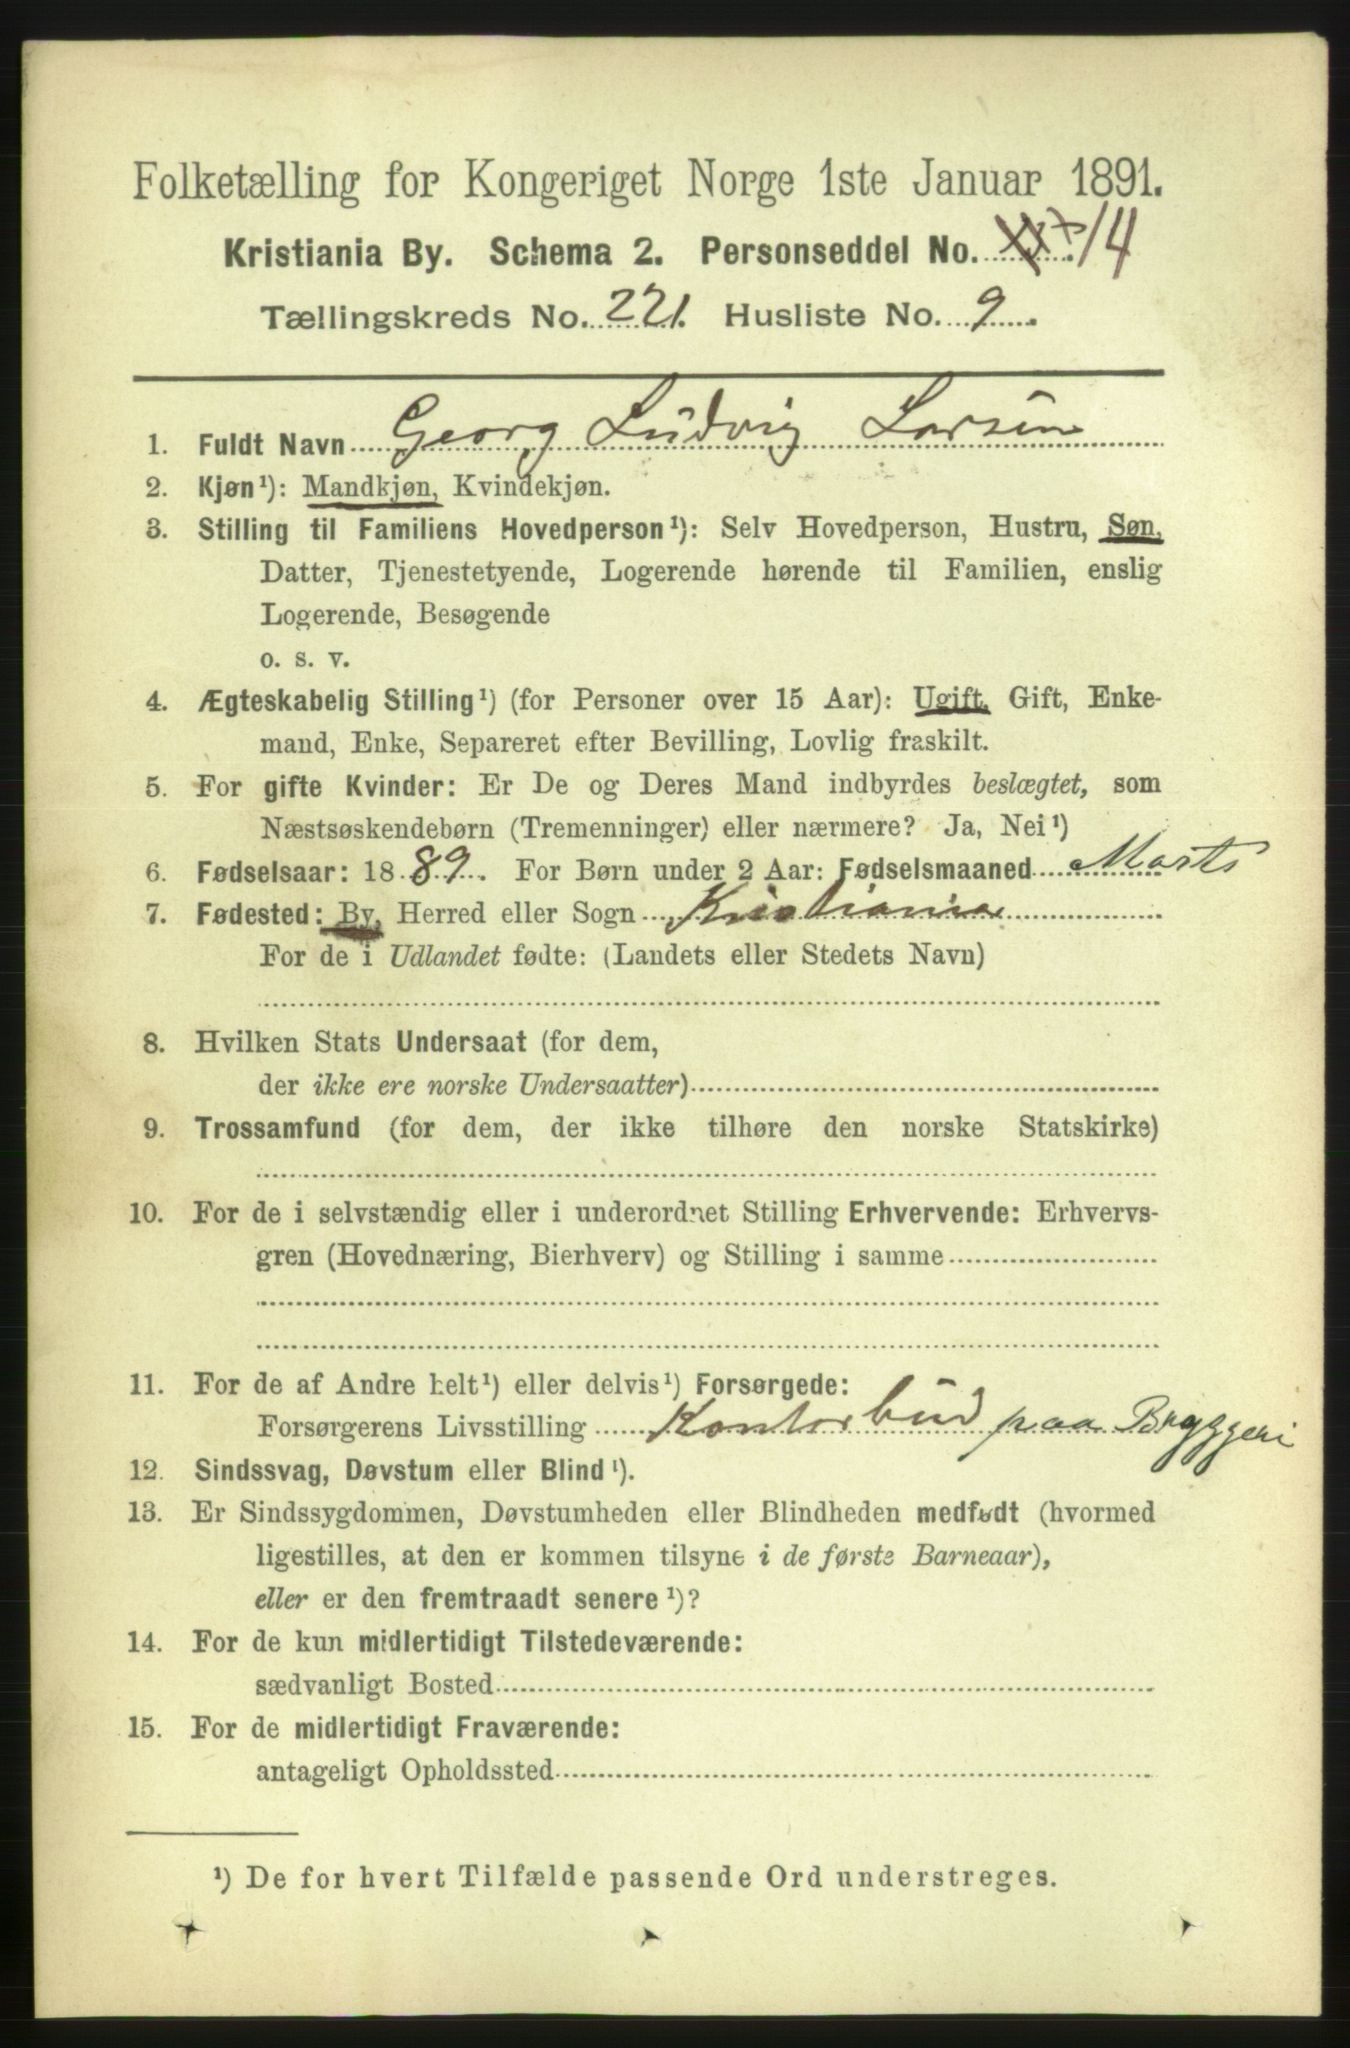 Folketælling for Kongeriget Norge 1ste Januar 1891.
Kristiania By. Schema 2. Personseddel No. 14
Tællingskreds No. 221. Husliste No. 9.
1. Fuldt Navn Georg Ludvig Larsen
2. Kjøn¹): Mandkjøn, Kvindekjøn.
3. Stilling til Familiens Hovedperson¹): Selv Hovedperson, Hustru, Søn,
Datter, Tjenestetyende, Logerende hørende til Familien, enslig
Logerende, Besøgende
o. s. v.
4. Ægteskabelig Stilling¹) (for Personer over 15 Aar): Ugift, Gift, Enke-
mand, Enke, Separeret efter Bevilling, Lovlig fraskilt.
5. For gifte Kvinder: Er De og Deres Mand indbyrdes beslægtet, som
Næstsøskendebørn (Tremenninger) eller nærmere? Ja, Nei¹)
6. Fødselsaar: 1889. For Børn under 2 Aar: Fødselsmaaned Marts
7. Fødested: By, Herred eller Sogn Kristiania
For de i Udlandet fødte: (Landets eller Stedets Navn)
8. Hvilken Stats Undersaat (for dem,
der ikke ere norske Undersaatter)
9. Trossamfund (for dem, der ikke tilhøre den norske Statskirke)
10. For de i selvstændig eller i underordnet Stilling Erhvervende: Erhvervs-
gren (Hovednæring, Bierhverv) og Stilling i samme
11. For de af Andre helt¹) eller delvis¹) Forsørgede:
Forsørgerens Livsstilling Kontorbud paa Bryggeri
12. Sindssvag, Døvstum eller Blind¹).
13. Er Sindssygdommen, Døvstumheden eller Blindheden medfødt (hvormed
ligestilles, at den er kommen tilsyne i de første Barneaar),
eller er den fremtraadt senere¹)?
14. For de kun midlertidigt Tilstedeværende:
sædvanligt Bosted
15. For de midlertidigt Fraværende:
antageligt Opholdssted
¹) De for hvert Tilfælde passende Ord understreges.